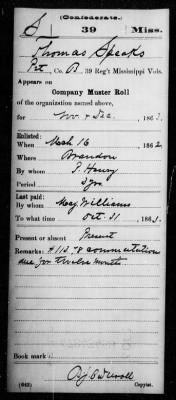 (Confederate.)
S 39 Miss.
Thomas Speaks
Pvt, Co. B, 39 Reg't Mississippi Vols.
Appears on
Company Muster Roll
of the organization named above,
for Nov. & Dec., 1863.
Enlisted:
When Mch 16, 1862
Where Brandon
By whom J. Haury
Period 3 yrs
Last paid:
By whom Maj. Williams
To what time Oct. 31, 1863.
Present or absent Present
Remarks: $113.78 commutation
due for twelve months
Book mark:
(642) Copyist.